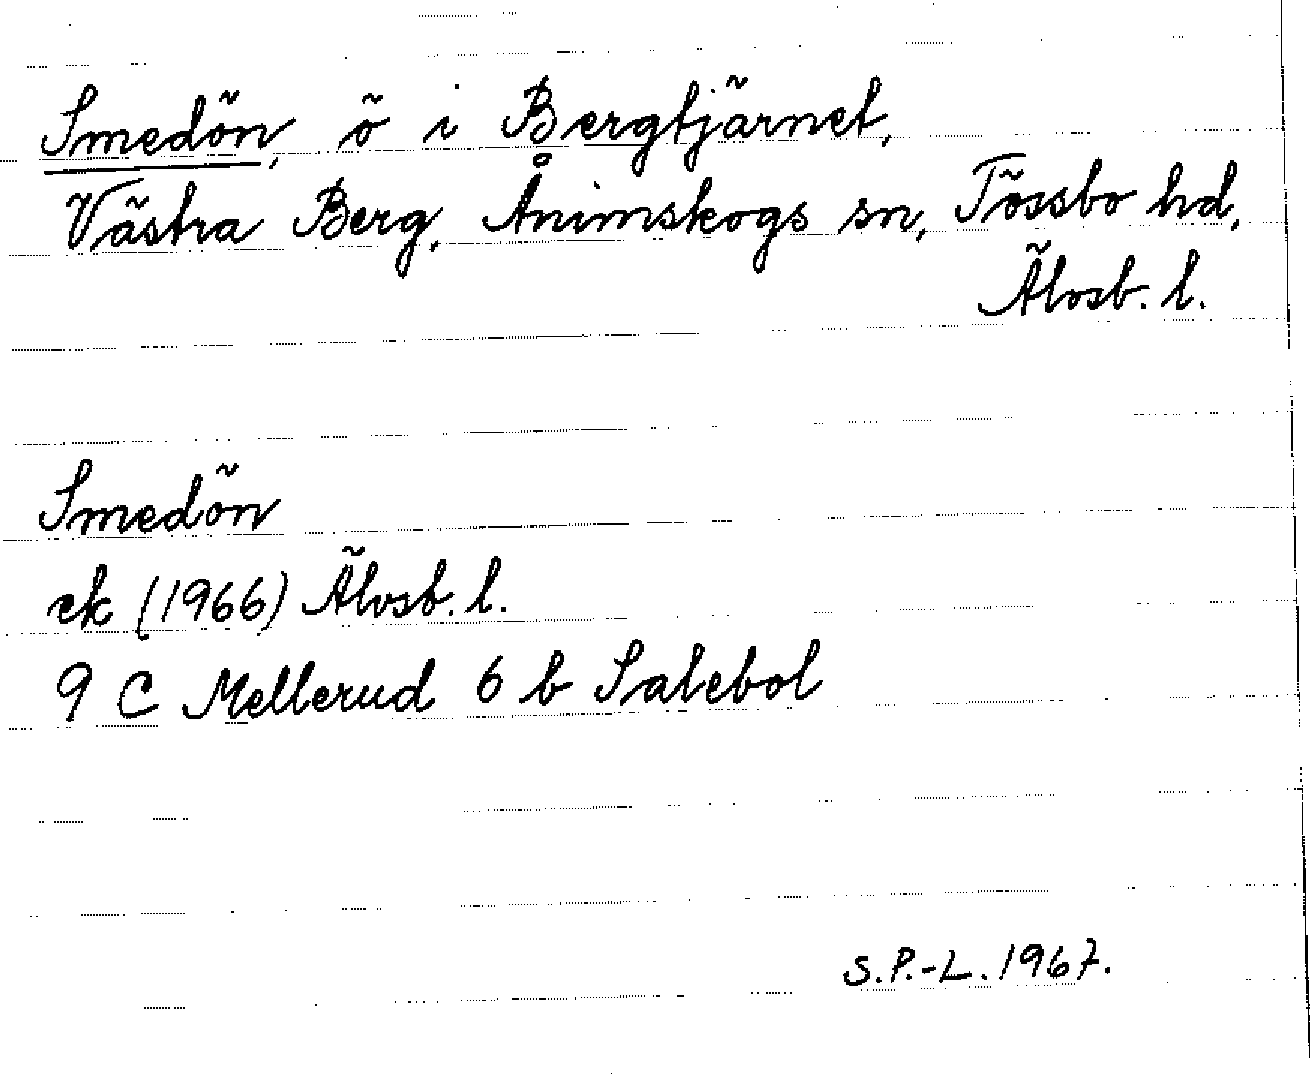 Smedön, ö i Bergtjärnet,
Västra Berg, Ånimskogs sn, Tössbo hd,
Älvsb. l.
Smedön
ek (1966) Älvsb. l.
9 C Mellerud 6 b Salebol
S.P.-L. 1967.